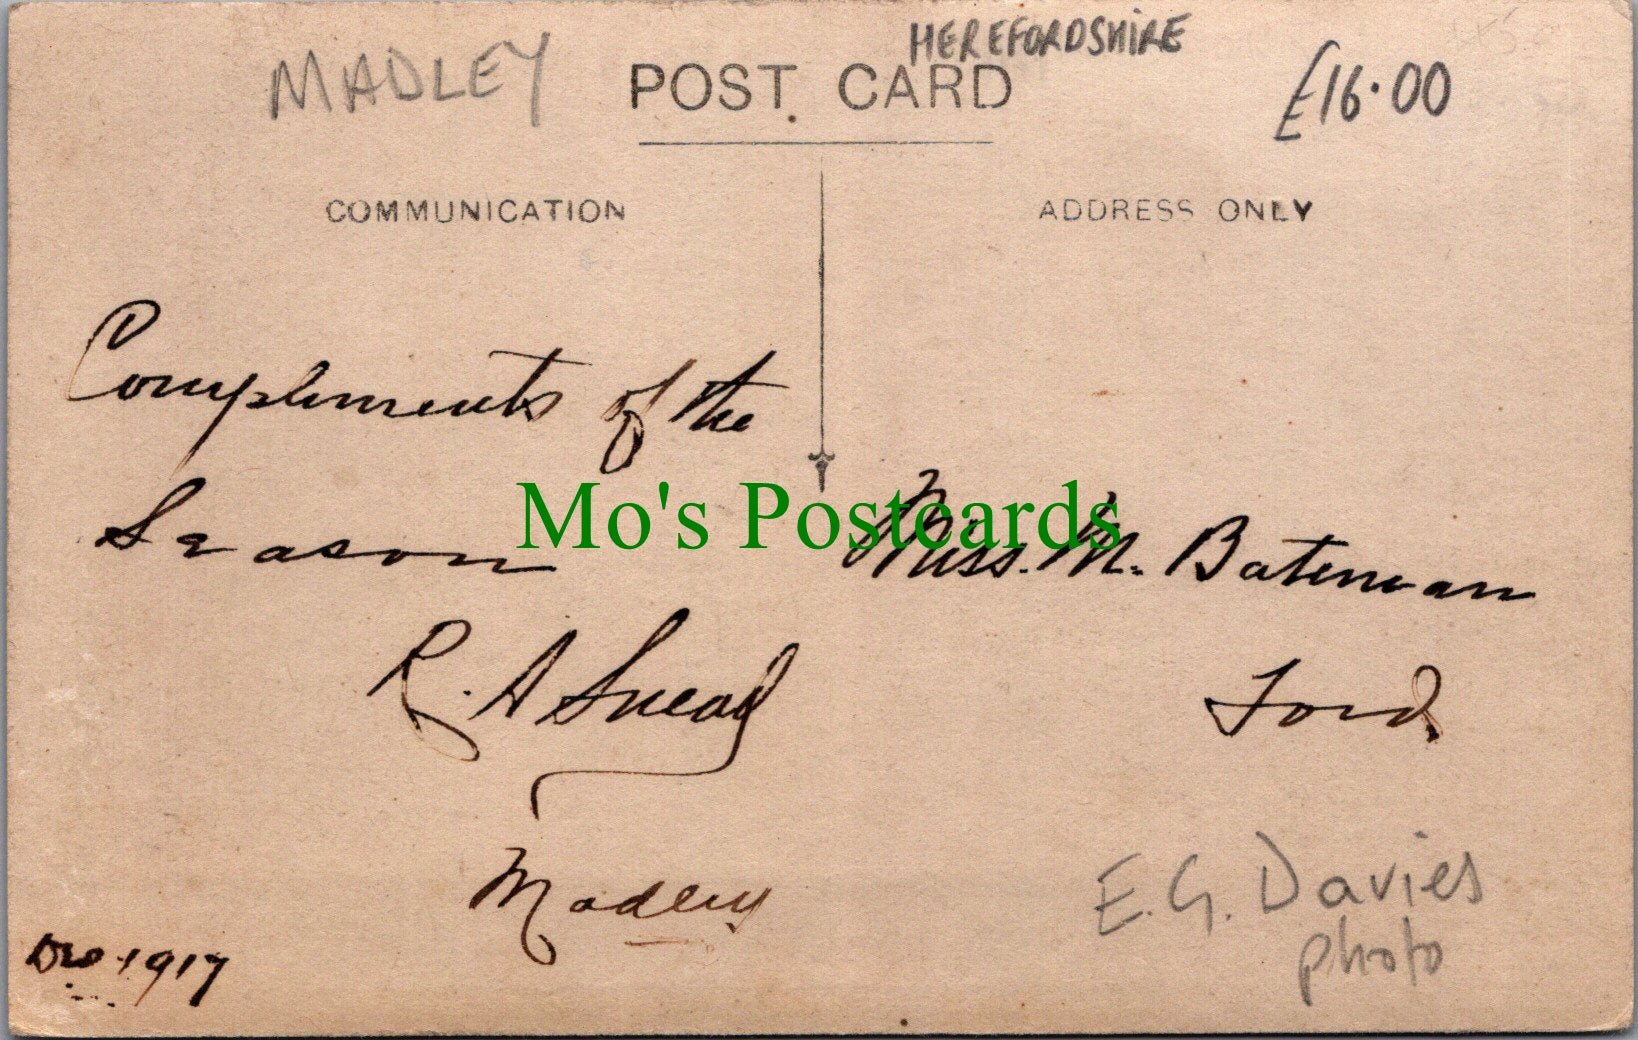 MADLEY
HEREFORDSHIRE
POST CARD
£16.00
COMMUNICATION
ADDRESS ONLY
Compliments of the
Season
R. A Snead
Madley
Dec 1917
Mo's Postcards
Miss. M. Bateman
Ford
E. G. Davies
photo